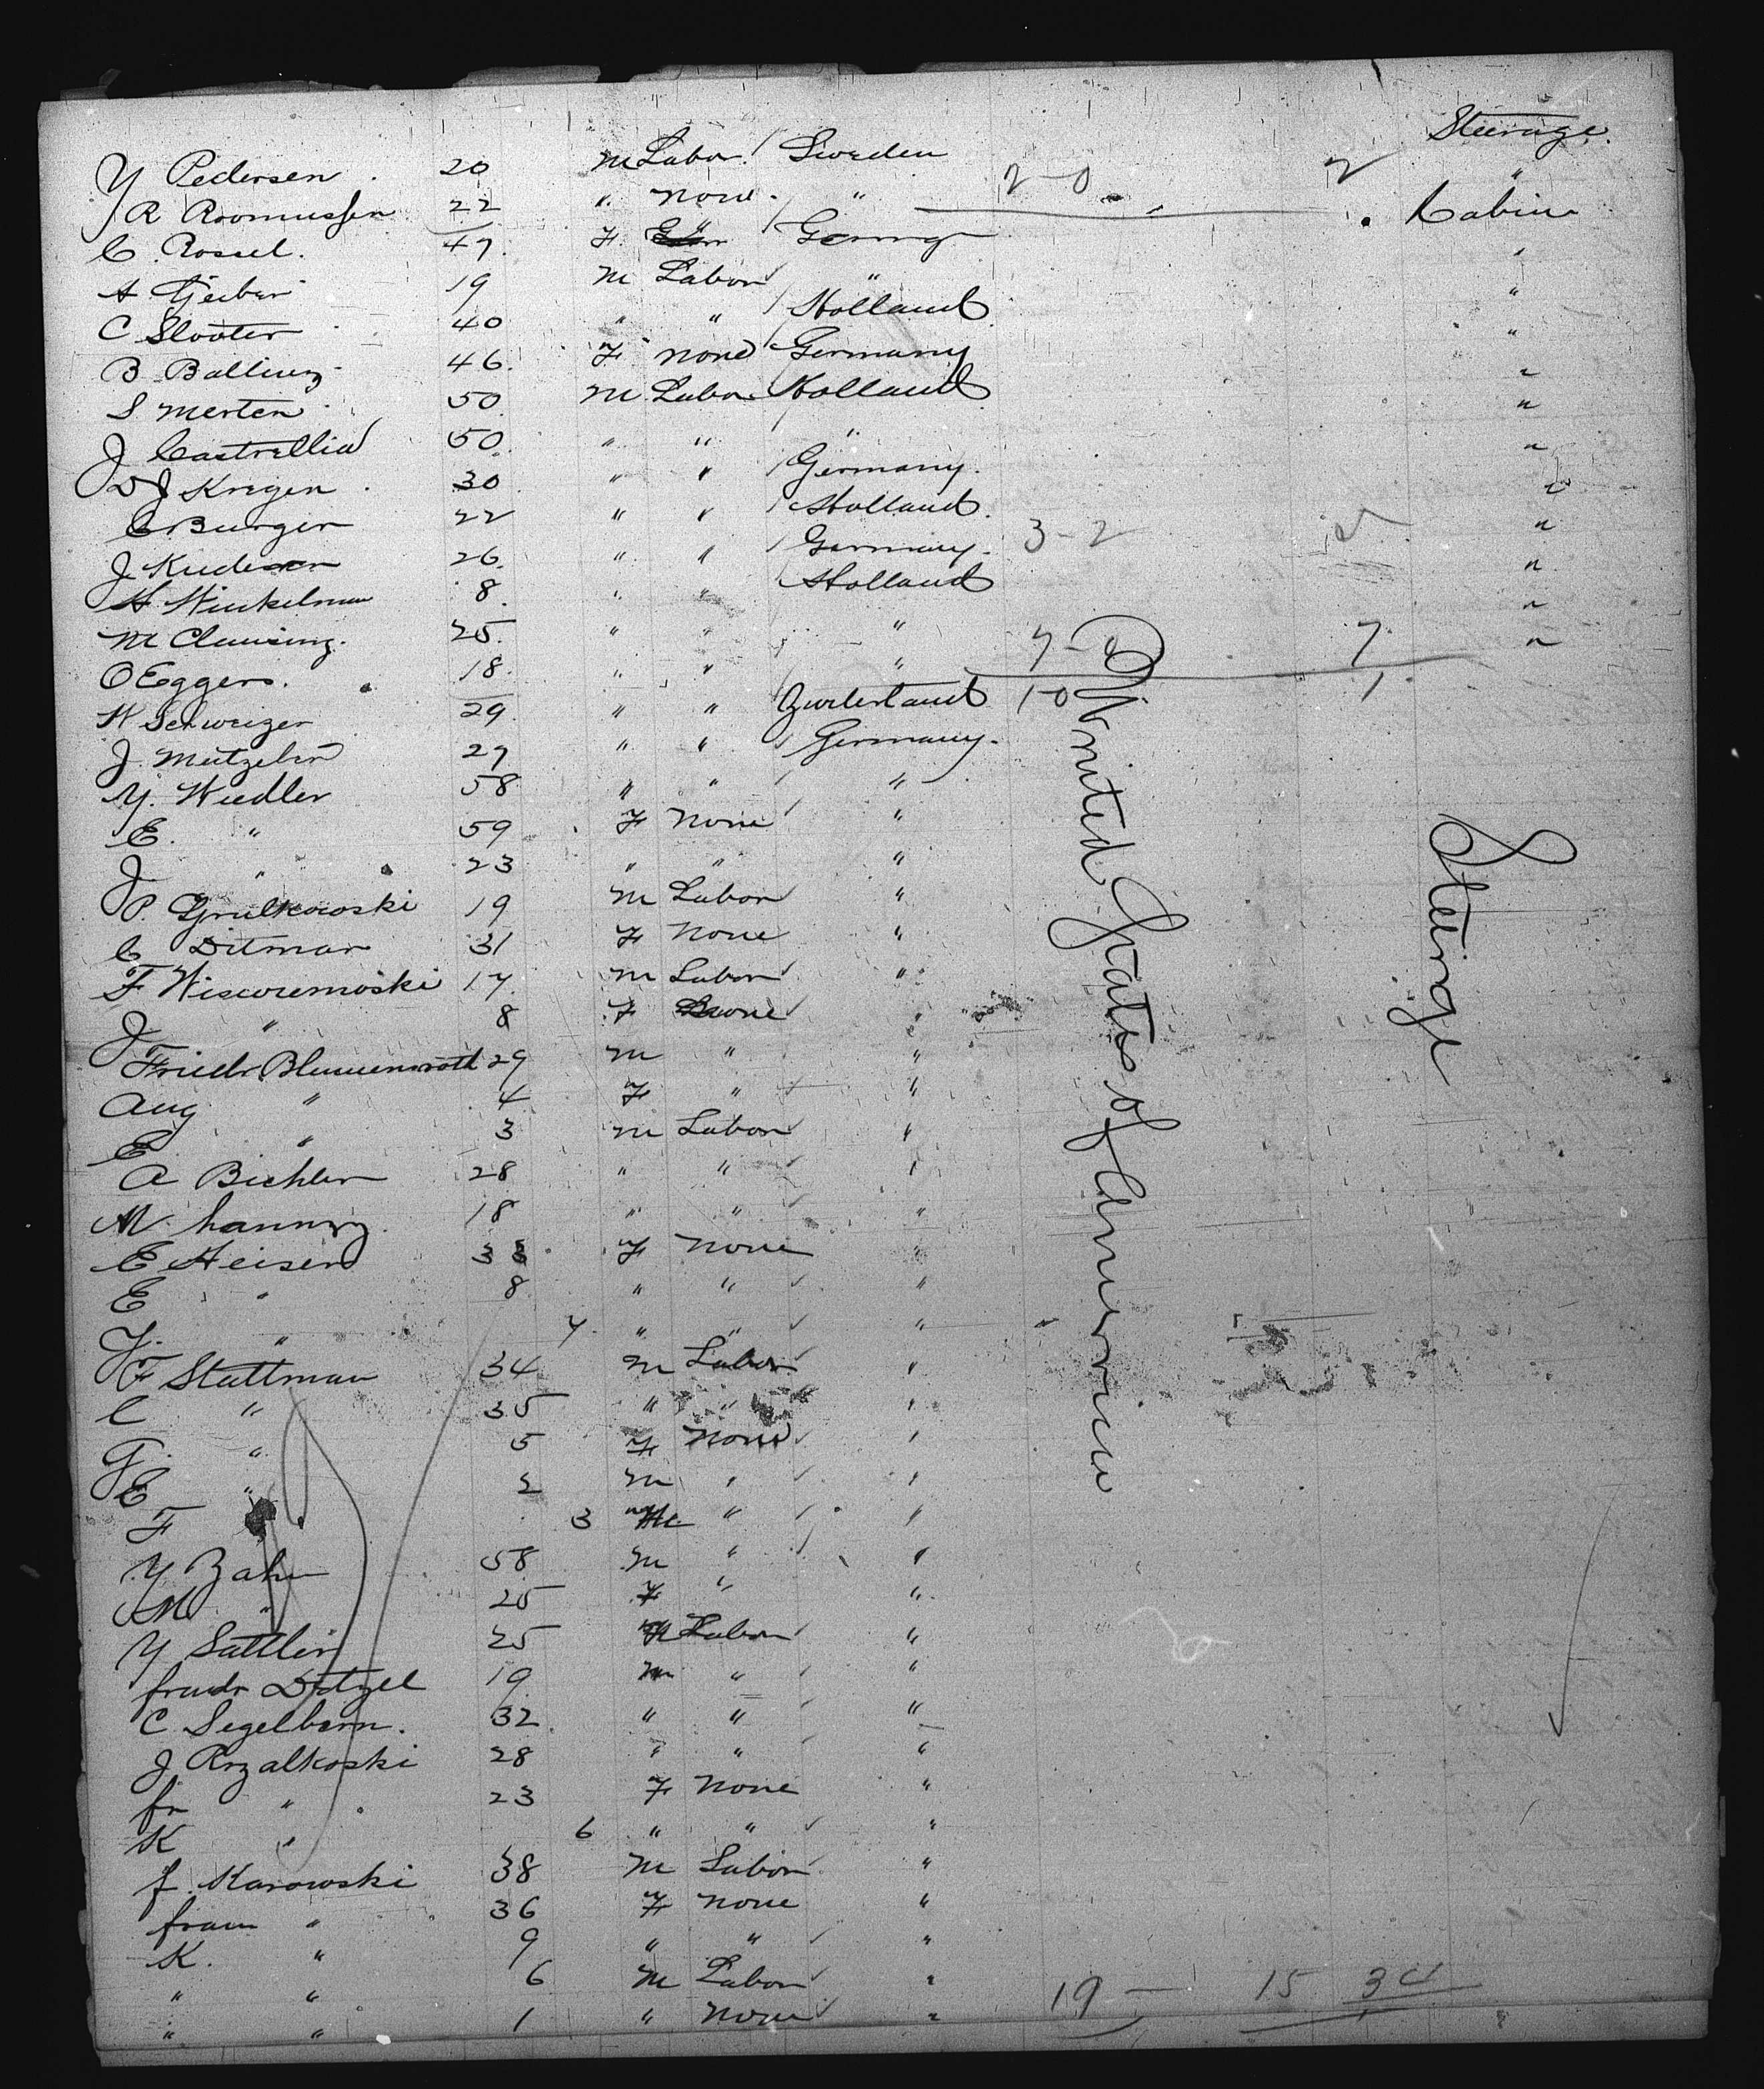 Steerage.
Y Pedersen . 20 m Labor. / Sweden "
J R Rasmussen 22 " None. " 2-0 2 Cabin
C. Rossel. 47. F. " / Germany "
A Gerber 19 m Labor "
C Slooter 40 " " / Holland "
B. Balling 46. F none Germany "
S Merten 50. m Labor Holland "
J 50. " " " "
D J Krogen . 30 " " / Germany. "
C Burger 22 " " / Holland. "
J 26. " " / Germany. 3-2 "
H Winkelman 8. " " Holland "
M Clausing. 25. " " " 7- 7 "
O Eggers. 18. " " "
W Schweizer 29. " " 10 1
J. 27 " " / Germany.
Y. Wiedler 58 " " "
E. " 59 F None "
J " 23 " " "
P. Grulkowski 19 m Labor "
C Ditmar 31 F None "
F 17. m Labor "
J " 8 F None "
Friedr. 29 m " "
Aug " 4 F " "
E " 3 m Labor "
A Bichler 28 " " "
M. 18 " " "
E Heiser 33 F None "
E " 8 " " "
J. " 7. " " "
F Stuttman 34 m Labor "
C " 35 " " "
G. " 5 F None "
E " 2 m " "
F " 3 " "
Y Zahn 58 m " "
M " 25 F " "
Y Sattler 25 Labor "
19 m " "
C. 32. " " "
J 28 " " "
fr " 23 F None "
K " 6 " " "
f. Karowski 38 m Labor "
" 36 F None "
K. " 9 " " "
" " 6 m Labor "
" " 1 " None "
19 - 15 34
United States of America
Steerage